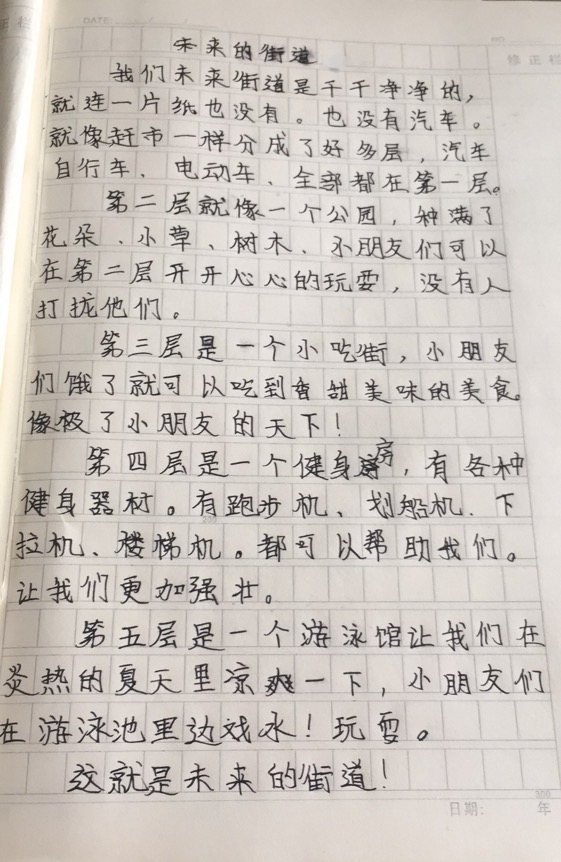 DATE
未来的街道
修正栏
我们未来街道是干干净净的，
就连一片纸也没有。也没有汽车。
就像赶市一样分成了好多层，汽车
自行车、电动车、全部都在第一层。
第二层就像一个公园，种满了
花朵、小草、树木、小朋友们可以
在第二层开开心心的玩耍，没有人
打拢他们。
第三层是一个小吃街，小朋友
们饿了就可以吃到香甜美味的美食。
像极了小朋友的天下！
第四层是一个健身房，有各种
健身器材。有跑步机、划船机、下
拉机、楼梯机。都可以帮助我们。
让我们更加强壮。
第五层是一个游泳馆让我们在
炎热的夏天里凉爽一下，小朋友们
在游泳池里边戏水！玩耍。
这就是未来的街道！
300
日期： 年